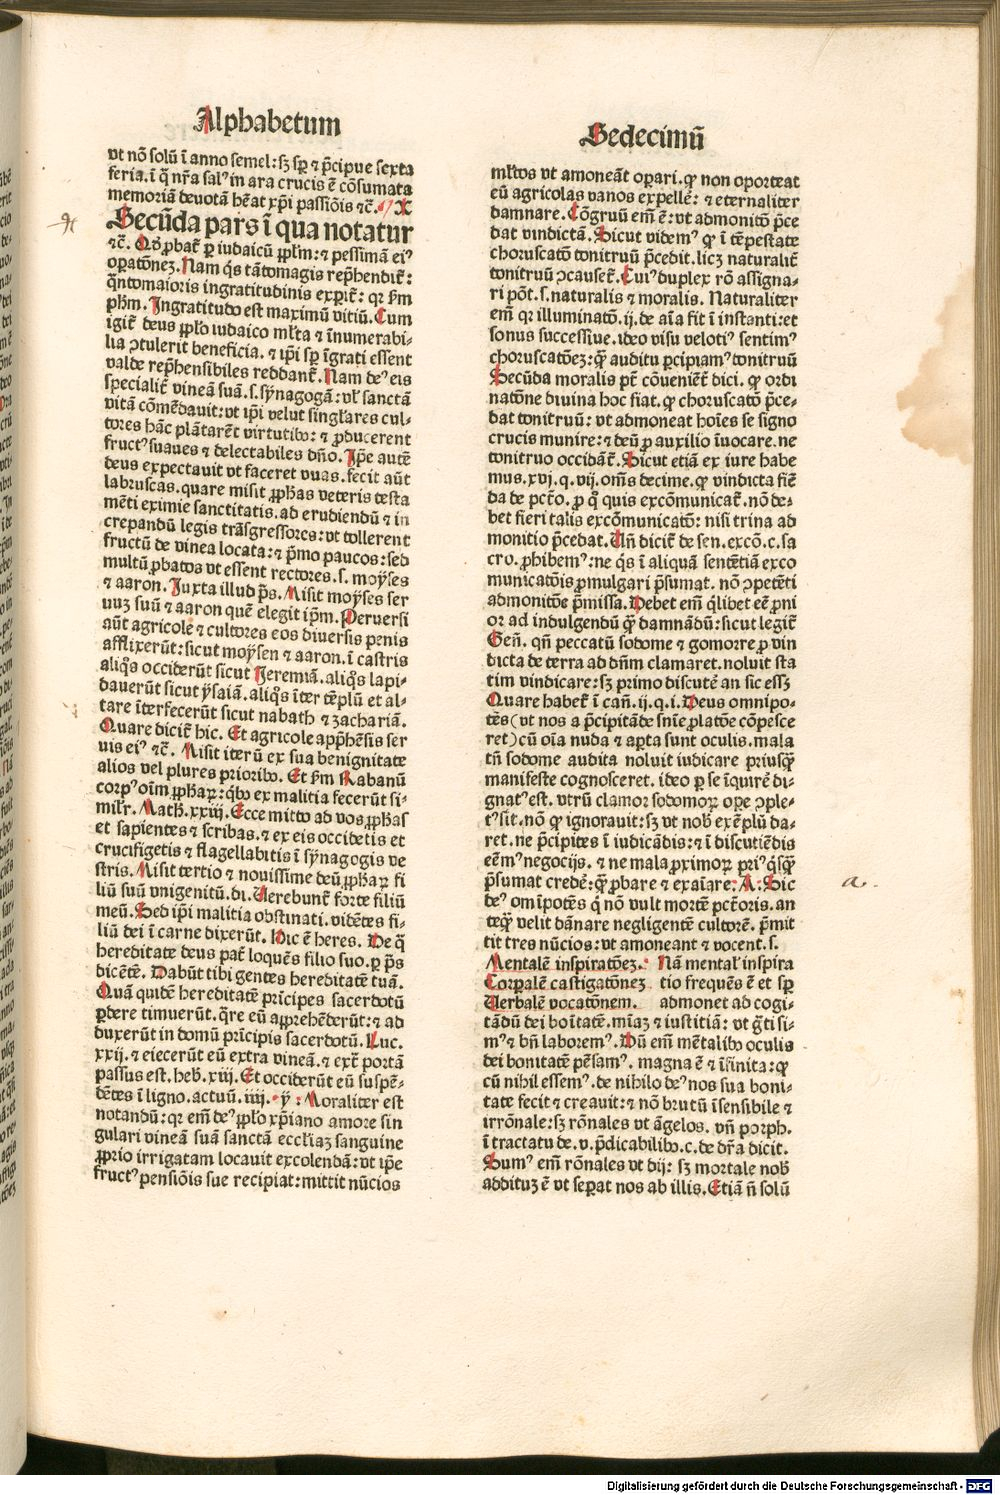 Alphabetum
vt nõ solũ ĩ anno semel: sꝫ sꝑ ⁊ p̃cipue sexta
feria. ĩ q̃ nr̃a salꝰ in ara crucis ẽ cõsumata
memoriã deuotã hẽat xp̃i passiõis ⁊c̃. X
Secũda pars ĩ qua notatur
⁊c̃. Qd̓ ꝓbat̃ ꝑ iudaicũ pp̃lm: ⁊ pessimã eiꝰ
oꝑatõnez. Nam q̃s tãtomagis rep̃hendit̃:
q̃ntomaioris ingratitudinis exꝑit̃: qꝛ ẜm
pħm. Ingratitudo est maximũ vitiũ. Cum
igit̃ deus ꝓp̃lo iudaico ml̃ta ⁊ ĩnumerabi-
lia ↄtulerit beneficia. ⁊ ip̃i sꝑ ĩgrati essent
valde rep̃hensibiles reddant̃. Nam deꝰ eis
specialit̃ vineã suã. s. sÿnagogã: vl̓ sanctã
vitã cõmẽdauit: vt ip̃i velut singl̃ares cul-
tores hãc plãtarẽt virtutibꝰ: ⁊ ꝓducerent
fructꝰ suaues ⁊ delectabiles dño. Ip̃e autẽ
deus expectauit vt faceret vuas. fecit aũt
labruscas. quare misit ꝓpħas veteris testa
mẽti eximie sanctitatis. ad erudiendũ ⁊ in
crepandũ legis trãsgressores: vt tollerent
fructũ de vinea locata: ⁊ p̃mo paucos: sed
multũ ꝓbatos vt essent rectores. s. moÿses
⁊ aaron. Juxta illud p̃s. Misit moÿses ser
uuꝫ suũ ⁊ aaron quẽ elegit ip̃m. Peruersi
aũt agricole ⁊ cultores eos diuersis penis
afflixerũt: sicut moÿsen ⁊ aaron. ĩ castris
aliq̃s occiderũt sicut Jeremiã. aliq̃s lapi-
dauerũt sicut ÿsaiã. aliq̃s ĩter tẽplũ et al-
tare ĩterfecerũt sicut nabath ⁊ zachariã.
Quare dicit̃ hic. Et agricole app̃hẽsis ser
uis eiꝰ ⁊c̃. Misit iterũ ex sua benignitate
alios vel plures prioribꝰ. Et ẜm Rabanũ
corpꝰ oĩm ꝓpħaꝝ: q̃bꝰ ex malitia fecerũt si-
mil̓r. Math. xxiij. Ecce mitto ad vos ꝓpħas
et sapientes ⁊ scribas. ⁊ ex eis occidetis et
crucifigetis ⁊ flagellabitis ĩ sÿnagogis ve
stris. Misit tertio ⁊ nouissime deũ ꝓpħaꝝ fi
liũ suũ vnigenitũ. di. Uerebunt̃ forte filiũ
meũ. Sed ip̃i malitia obstinati. vidẽtes fi-
liũ dei ĩ carne dixerũt. Hic ẽ heres. De q̃
hereditate deus pat̃ loquẽs filio suo. ꝑ p̃s
dicẽtẽ. Dabũt tibi gentes hereditatẽ tuã.
Quã quidẽ hereditatẽ prĩcipes sacerdotũ
ꝑdere timuerũt. q̃re eũ apprehẽderũt: ⁊ ad
duxerũt in domũ prĩcipis sacerdotũ. Luc.
xxij. ⁊ eiecerũt eũ extra vineã. ⁊ ext̃ portã
passus est. heb̓. xiij. Et occiderũt eũ suspẽ-
dẽtes ĩ ligno. actuũ. iiij. ẏ : Moraliter est
notandũ: qꝛ em̃ deꝰ ꝓp̃lo xp̃iano amore sin
gulari vineã suã sanctã eccl̓iaꝫ sanguine
ꝓprio irrigatam locauit excolendã: vt ip̃e
fructꝰ pensiõis sue recipiat: mittit nũcios
Sedecimũ
ml̓tos vt amoneãt oꝑari. qꝙ non oporteat
eũ agricolas vanos expellẽ: ⁊ eternaliter
damnare. Cõgruũ em̃ ẽ: vt admonitõ p̃ce
dat vindictã. Sicut videmꝰ qꝙ ĩ tẽpestate
choruscatõ tonitruũ p̃cedit. licꝫ naturalit̃
tonitruũ ↄcauset̃. Cuiꝰ duplex rõ assigna-
ri põt. s. naturalis ⁊ moralis. Naturaliter
em̃ qꝛ illuminatõ. ij. de aĩa fit ĩ instanti: et
sonus successiue. ideo visu velotiꝰ sentimꝰ
choruscatõez: q̃ꝫ auditu ꝑcipiamꝰ tonitruũ
Secũda moralis pt̃ cõueniẽt̃ dici. qꝙ ordi
natõne diuina hoc fiat. qꝙ choruscatõ p̃ce-
dat tonitruũ: vt admoneat hoĩes se signo
crucis munire: ⁊ deũ ꝓ auxilio ĩuocare. ne
tonitruo occidãt̃. Sicut etiã ex iure habe
mus. xvj. q. vij. om̃s decime. qꝙ vindicta fiẽ
da de pct̃o. ꝓ q̃ quis excõmunicat̃. nõ de-
bet fieri talis excõmunicatõ: nisi trina ad
monitio p̃cedat. Uñ dicit̃ de sen. excõ. c. sa
cro. ꝓhibemꝰ: ne q̃s ĩ aliquã sentẽtiã exco
municatõis ꝓmulgari p̃sumat. nõ ↄpetẽti
admonitõe p̃missa. Debet em̃ q̃libet eẽ ꝓni
or ad indulgendũ q̃ꝫ damnãdũ: sicut legit̃
Geñ. qñ peccatũ sodome ⁊ gomorre ꝓ vin
dicta de terra ad dñm clamaret. noluit sta
tim vindicare: sꝫ primo discutẽ an sic essꝫ
Quare habet̃ ĩ cañ. ij. q. i. Deus omnipo-
tẽs (vt nos a p̃cipitãde sñie ꝓlatõe cõpesce
ret) cũ oĩa nuda ⁊ aꝑta sunt oculis. mala
tñ sodome audita noluit iudicare priusq̃ꝫ
manifeste cognosceret. ideo ꝑ se ĩquirẽ di-
gnatꝰ est. vtrũ clamor sodomoꝝ oꝑe ↄple-
tꝰ sit. nõ qꝙ ignorauit: sꝫ vt nob̓ exẽplũ da-
ret. ne p̃cipites ĩ iudicãdis: ⁊ ĩ discutiẽdis
eẽmꝰ negocijs. ⁊ ne mala ꝓximoꝝ priꝰ q̃sq̃ꝫ
p̃sumat credẽ: q̃ꝫ ꝓbare ⁊ exaĩare: A: Sic
deꝰ om̃ipotẽs q̓ nõ vult mortẽ pct̃oris. an
teq̃ꝫ velit dãnare negligentẽ cultorẽ. p̃mit
tit tres nũcios: vt amoneant ⁊ vocent. s.
Mentalẽ inspiratõez. Nã mental̓ inspira
Corꝑalẽ castigatõnez tio frequẽs ẽ et sꝑ
Uerbalẽ vocatõnem. admonet ad cogi-
tãdũ dei boĩtatẽ. mĩaꝫ ⁊ iustitiã: vt g̃ti si-
mꝰ ⁊ bñ laboremꝰ. Dũ em̃ mẽtalibꝰ oculis
dei bonitatẽ pẽsamꝰ. magna ẽ ⁊ ĩfinita: qꝙ
cũ nihil essemꝰ. de nihilo deꝰ nos sua boni-
tate fecit ⁊ creauit: ⁊ nõ brutũ ĩsensibile ⁊
irrõnale: sꝫ rõnales vt ãgelos. vñ porph.
ĩ tractatu de. v. p̃dicabilibꝰ. c. de dr̃a dicit.
Sumꝰ em̃ rõnales vt dij: sꝫ mortale nob̓
addituꝫ ẽ vt seꝑat nos ab illis. Etiã ñ solũ
a.
Digitalisierung gefördert durch die Deutsche Forschungsgemeinschaft - DFG